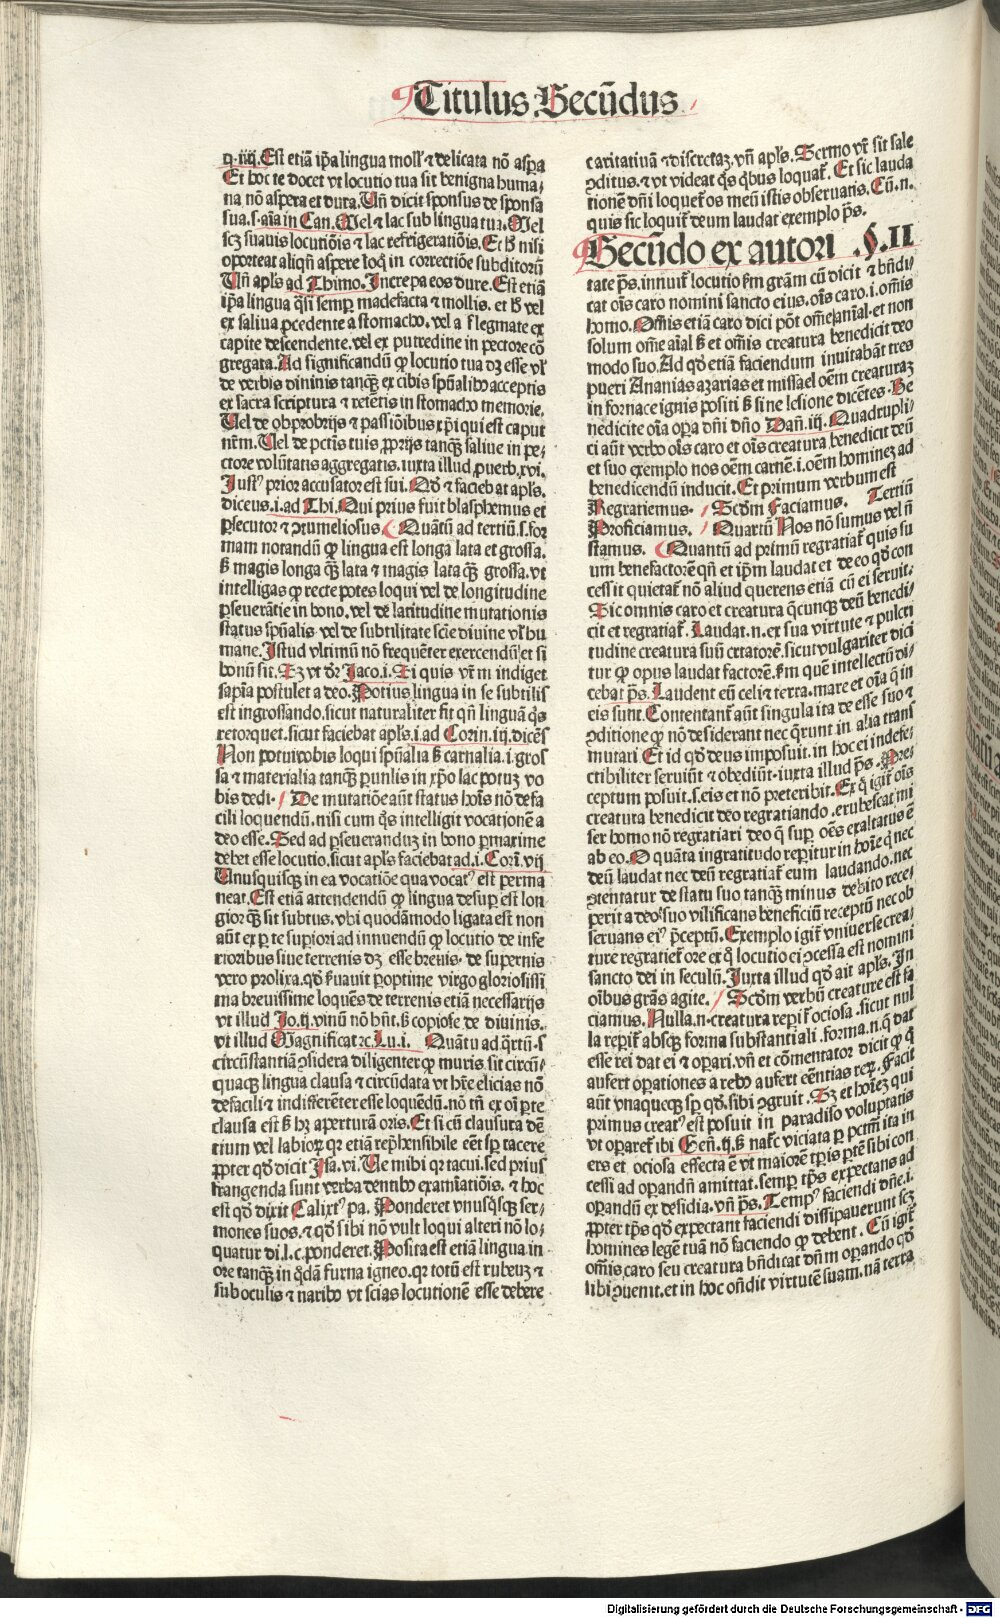 Titulus Secūdus
q.iiij. Est etiā ip̄a lingua moll' ⁊ delicata nō asp̄a
Et hoc te docet vt locutio tua sit benigna huma-
na nō aspera et dura. Uñ dicit sponsus de sponsa
sua.s.aīa in Can. Mel ⁊ lac sub lingua tua. Mel
scꝫ suauis locutiōis ⁊ lac refrigeratiōis. Et hꝭ nisi
oporteat aliqñ aspere loq̄ in correctiōe subditorū
Uñ apl's ad Thimo. Increpa eos dure. Est etiā
ip̄a lingua q̄si semꝑ madefacta ⁊ mollis. et hꝭ vel
ex saliua ꝓcedente a stomacho. vel a flegmate ex
capite descendente. vel ex putredine in pectore cō
gregata. Ad significandū ꝙ locutio tua dꝫ esse vl'
de verbis diuinis tanqꝫ ex cibis sp̄ualibꝰ acceptis
ex sacra scriptura ⁊ retētis in stomacho memorie.
Uel de obprobrijs ⁊ passiōibus xp̄i qui est caput
nr̄m. Uel de pctīs tuis ꝓprijs tanqꝫ saliue in pe-
ctore volūtatis aggregatis. iuxta illud ꝓuerb. xvi.
Iustꝰ prior accusator est sui. Qd' ⁊ faciebat apl's.
dicens.i.ad Thi. Qui prius fuit blasphemus et
ꝑsecutor ⁊ ꝯtumeliosus. Quātū ad tertiū.s.for
mam notandū ꝙ lingua est longa lata et grossa.
sꝫ magis longa qꝫ lata ⁊ magis lata qꝫ grossa. vt
intelligas ꝙ recte potes loqui vel de longitudine
ꝑseuerātie in bono. vel de latitudine mutationis
status sp̄ualis. vel de subtilitate scīe diuine vl' hu
mane. Istud vltimū nō frequēter exercendū. et si
bonū sit. Sꝫ vt dr̄ Jaco.i. Si quis vr̄m indiget
sapīa postulet a deo. Potius lingua in se subtilis
est ingrossando. sicut naturaliter fit qñ linguā q̄s
retorquet. sicut faciebat apl's.i.ad Corin.iij. dicēs
Non potui vobis loqui sp̄ualia sꝫ carnalia.i.gros
sa ⁊ materialia tanqꝫ ꝑuulis in xp̄o lac potuꝫ vo
bis dedi. De mutatiōe aūt status hoīs nō defa
cili loquendū. nisi cum q̄s intelligit vocationē a
deo esse. Sed ad ꝑseueranduꝫ in bono ꝑmaxime
debet esse locutio. sicut apl's faciebat ad.i.Corī.vij
Unusquisqꝫ in ea vocatiōe qua vocatꝰ est perma
neat. Est etiā attendendū ꝙ lingua desuꝑ est lon
gior qꝫ sit subtus. vbi quodāmodo ligata est non
aūt ex ꝑte supiori ad innuendū ꝙ locutio de infe
rioribus siue terrenis dꝫ esse breuis. de supernis
vero prolixa. qd' ẜuauit ꝑoptime virgo gloriosissi
ma breuissime loquēs de terrenis etiā necessarijs
vt illud Jo.ij. vinū nō hñt. sꝫ copiose de diuinis.
vt illud Magnificat ⁊c. Lu.i. Quātū ad q̄rtū.s.
circūstantiā ꝯsidera diligenter ꝙ muris. sit circū-
quaqꝫ lingua clausa ⁊ circūdata vt hr̄e elicias nō
defacili ⁊ indifferēter esse loquēdū. nō tñ ex oī ꝑte
clausa est sꝫ hꝫ aperturā oris. Et si cū clausura dē
tium vel labioꝝ qr etiā rep̄hensibile eēt sꝑ tacere
ꝓpter qd' dicit Isa.vi. Ue mihi qr tacui. sed prius
frangenda sunt verba dentibꝰ examīatiōis. ⁊ hoc
est qd' dixit Calixtꝰ pa. Ponderet vnusq̄sqꝫ ser-
mones suos. ⁊ qd' sibi nō vult loqui alteri nō lo-
quatur di.l.c. ponderet. Posita est etiā lingua. in
ore tanqꝫ in q̄dā furna igneo. qr totū est rubeuꝫ ⁊
sub oculis ⁊ naribꝰ vt scias locutionē esse debere
caritatiuā ⁊ discretaꝫ. vñ apl's. Sermo vr̄ sit sale
ꝯditus. ⁊ vt videat q̄s q̄bus loquat̄. Et sic lauda
tionē dñi loquet̄ os meū istis obseruatis. Cū.n.
quis sic loquit̄ deum laudat exemplo p̄s.
Secūdo ex autori .§.II
tate p̄s. innuit̄ locutio ẜm grām cū dicit ⁊ bñdi-
cat oīs caro nomini sancto eius. oīs caro.i.omīs
homo. Om̄is etiā caro dici pōt om̄e aīal. et non
solum om̄e aīal sꝫ et om̄is creatura benedicit deo
modo suo. Ad qd' etiā faciendum inuitabāt tres
pueri Ananias azarias et missael oēm creaturaꝫ
in fornace ignis positi sꝫ sine lesione dicētes. Be
nedicite oīa oꝑa dñi dño Dañ.iij. Quadrupli-
ci aūt verbo oīs caro et oīs creatura benedicit deū
et suo exemplo nos oēm carnē.i.oēm hominez ad
benedicendū inducit. Et primum verbum est
Regratiemus. Scdm Faciamus. Tertiū
Proficiamus. Quartū Nos nō sumus vel ñ
stamus. Quantū ad primū regratiat̄ quis su
um benefactorē qñ et ip̄m laudat et de eo qd' con
cessit quietat̄ nō aliud querens etiā cū ei seruit.
Sic omnis caro et creatura q̄cunqꝫ deū benedi-
cit et regratiat̄. Laudat.n.ex sua virtute ⁊ pulcri
tudine creatura suū creatorē. sicut vulgariter dici
tur ꝙ opus laudat factorē. ẜm quē intellectū di-
cebat p̄s. Laudent eū celi ⁊ terra. mare et oīa q̄ in
eis sunt. Contentant̄ aūt singula ita de esse suo ⁊
ꝯditione ꝙ nō desiderant nec q̄runt in alia trans
mutari. Et id qd' deus imposuit. in hoc ei indefe-
ctibiliter seruiūt ⁊ obediūt. iuxta illud p̄s. Pre-
ceptum posuit.s.eis et nō preteribit. Ex q̄ igit̄ oīs
creatura benedicit deo regratiando. erubescat mi
ser homo nō regratiari deo q̄ suꝑ oēs exaltatus ē
ab eo. O quanta ingratitudo reperitur in hoīe q̄ nec
deū laudat nec deū regratiat̄ eum laudando. nec
ꝯtentatur de statu suo tanqꝫ minus debito rece-
perit a deo ⁊ suo vilificans beneficiū receptū nec ob
seruans eiꝰ p̄ceptū. Exemplo igit̄ vniuerse crea-
ture regratiet̄ ore ex q̄ locutio ei ꝯcessa est nomini
sancto dei in seculū. Iuxta illud qd' ait apl's. In
oībus grās agite. Scdm verbū creature est fa
ciamus. Nulla.n.creatura reꝑit̄ ociosa. sicut nul
la reꝑit̄ absqꝫ forma substantiali. forma.n.q̄ dat
esse rei dat ei ⁊ oꝑari. vñ et cōmentator dicit ꝙ q̄
aufert oꝑationes a rebꝰ aufert eēntias reꝝ. Facit
aūt vnaqueqꝫ sꝑ qd' sibi ꝯgruit. Sꝫ et hoīez qui
primus creatꝰ est posuit in paradiso voluptatis
vt oparet̄ ibi Geñ.ij. sꝫ nat̄c viciata ꝑ pctm̄ ita in
ers et ociosa effecta ē vt maiorē tꝑis ꝑtē sibi con
cessi ad oꝑandū amittat. semꝑ tꝑs expectans ad
oꝑandū ex desidia. vñ p̄s. Tempꝰ faciendi dñe.i.
ꝓpter tꝑs qd' expectant faciendi dissipauerunt scꝫ
homines legē tuā nō faciendo ꝙ debent. Cū igit̄
om̄is caro seu creatura bñdicat dñm oꝑando qd'
sibi ꝯuenit. et in hoc oñdit virtutē suam. nā terra
Digitalisierung gefördert durch die Deutsche Forschungsgemeinschaft - DFG